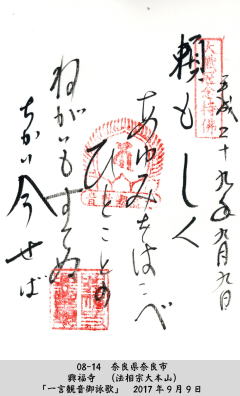 平成二十九年九月九日
頼もしく
あゆみをはこべ
ひとことの
ねがいもすてぬ
ちかい今せば
08-14 奈良県奈良市
興福寺 (法相宗大本山)
「一言観音御詠歌」 2017年9月9日